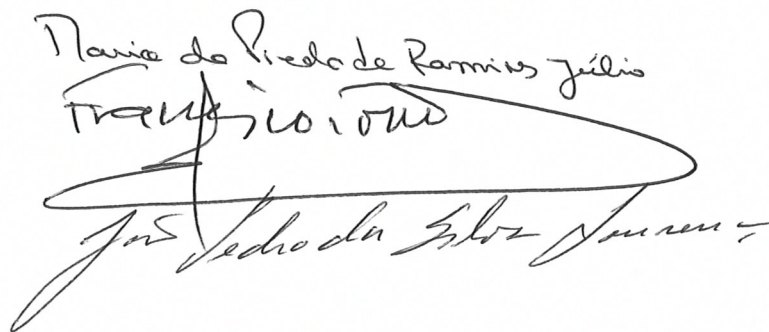 Maria da Piedade Ramires Júlio
Francisco
José Pedro da Silva Lourenço